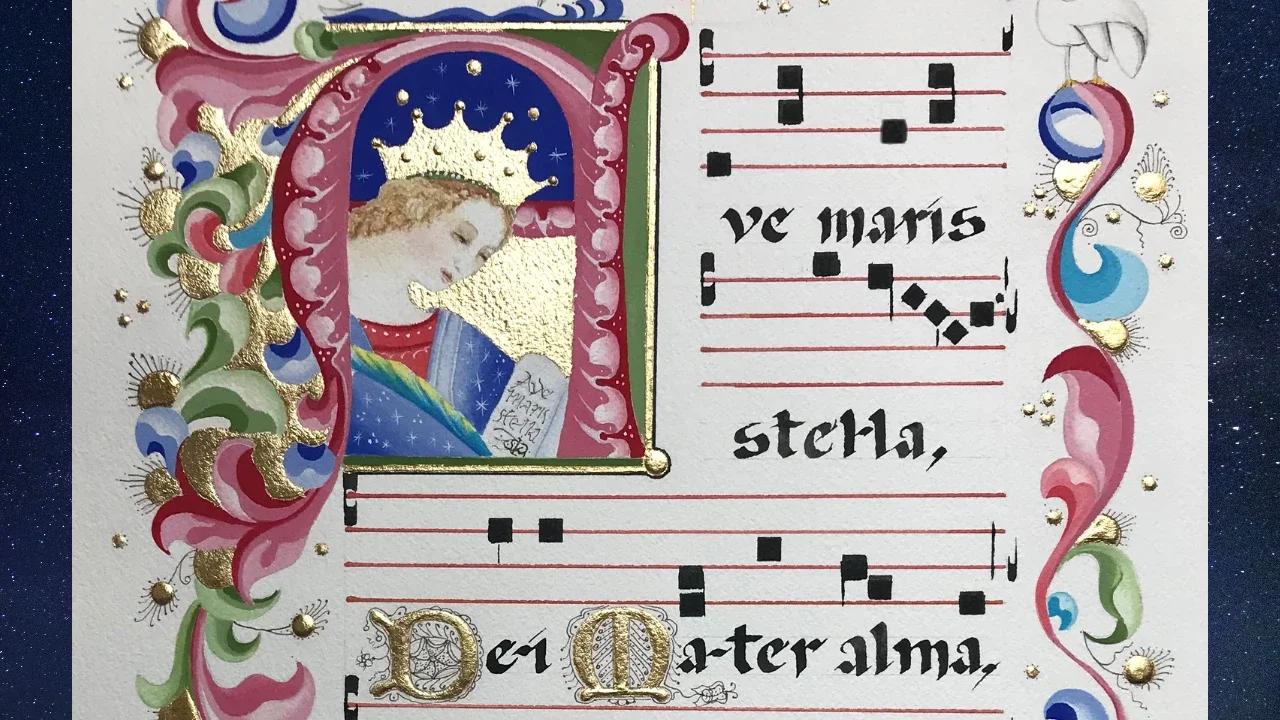 Ave maris
stel-la,
De-i Ma-ter alma,
Ave
maris
stella